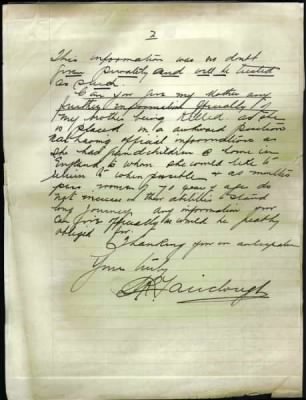 2
This information was no doubt
give privately and will be treated
as such.
Can you give my Mother any
further information officially of
my brother being killed, as she
is placed in a awkward position
not having official informations as
she had grandchildren & home in
England, to whom she would like to
return to when possible & as matters
women of 70 years of age do
not increase in their abilities to stand
long journey any information you
can give officially she would be greatly
obliged for.
Thanking you in anticipation
Yours truly
Fairclough